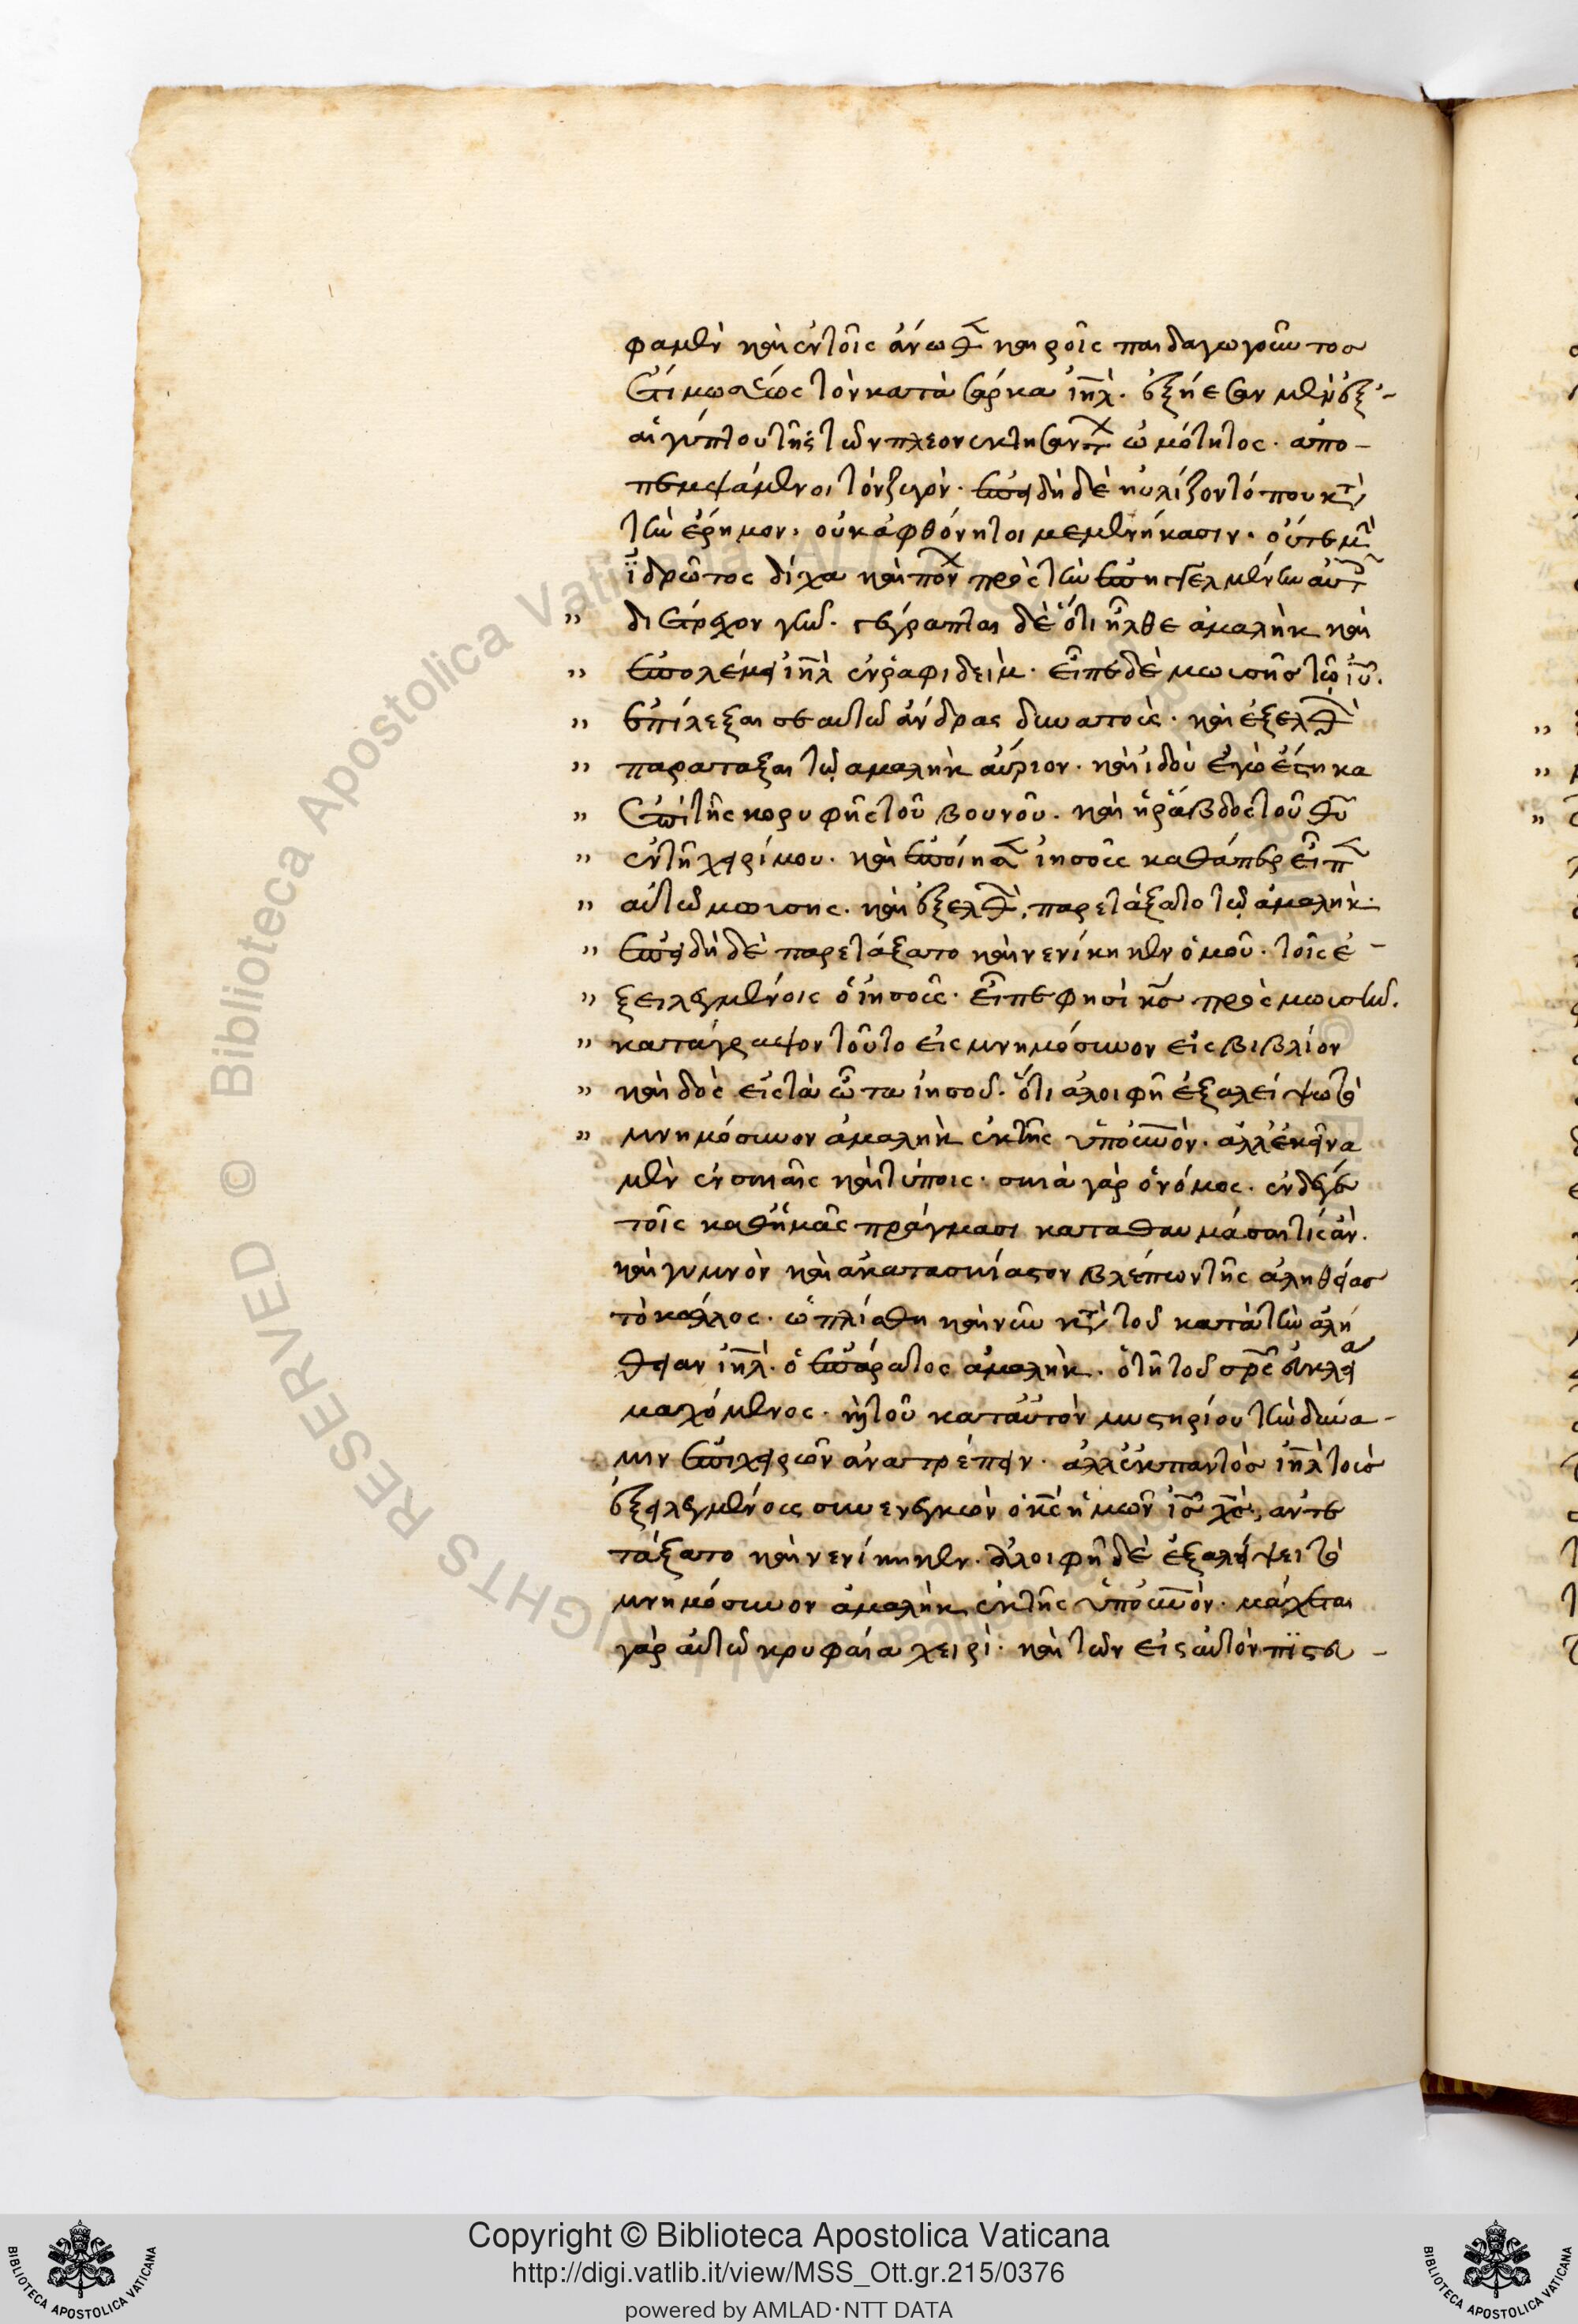 φαμὲν καὶ ἐν τοῖς ἄνωθεν καιροῖς παιδαγωγοῦντος
ἔτι μωσέως τὸν κατὰ σάρκα ἰηλ. ἐξήεσαν μὲν ἐξ-
αἰγύπτου τῆς τῶν πλεονεκτησάντων ὠμότητος. ἀπο-
πεμψάμενοι τὸν ζυγόν. ἐπειδὴ δὲ ηὐλίζοντό που κατὰ
τὴν ἔρημον, οὐκ ἀφθόνητοι μεμενήκασιν. οὔτε μὴν
ἱδρῶτος δίχα καὶ πόνων πρὸς τὴν ἐπηγγελμένην αὐτοῖς
„ διέτρεχον γῆν. γέγραπται δὲ ὅτι ἦλθε ἀμαλὴκ καὶ
„ ἐπολέμει ἰηλ ἐν ῥαφιδεὶμ. εἶπε δὲ μωυσῆς τῷ ἰυ.
„ ἐπίλεξαι σεαυτῷ ἄνδρας δυνατοὺς. καὶ ἐξελθὼν
„ παραταξαι τῷ αμαλὴκ αὔριον. καὶ ἰδοὺ ἐγὼ ἕστηκα
„ ἐπὶ τῆς κορυφῆς τοῦ βουνοῦ. καὶ ἡ ῥάβδος τοῦ θυ
„ ἐν τῇ χειρί μου. καὶ ἐποίησεν ἰησοῦς καθάπερ εἶπεν
„ αὐτῷ μωυσης. καὶ ἐξελθὼν, παρετάξατο τῷ ἀμαλήκ.
„ ἐπειδὴ δὲ παρετάξατο καὶ νενίκηκεν ὁμοῦ. τοῖς ἐ-
„ ξειλεγμένοις ὁ ἰησοῦς. εἶπε φησὶ κς πρὸς μωυσῆν.
„ κατάγραψον τοῦτο εἰς μνημόσυνον εἰς βιβλίον
„ καὶ δὸς εἰς τὰ ὦτα ἰησοῦ. ὅτι ἀλοιφῇ ἐξαλείψω τὸ
„ μνημόσυνον ἀμαλὴκ ἐκ τῆς ὑπ οὐνόν. ἀλλ' ἐκεῖνα
μὲν ἐν σκιαῖς καὶ τύποις. σκιὰ γὰρ ὁ νόμος. ἐν δέ γε
τοῖς καθ ἡμᾶς πράγμασι καταθαυμάσαι τίς ἂν.
καὶ γυμνὸν καὶ ἀκατασκίαστον βλέπων τῆς ἀληθείας
τὸ κάλλος. ὡπλίσθη καὶ νῦν κατὰ τοῦ κατὰ τὴν ἀλή
θειαν ἰηλ. ὁ ἐπάρατος ἀμαλὴκ. ὁ τῇ τοῦ σρς ἐκκλησίᾳ
μαχόμενος. καὶ τοῦ κατ αὐτὸν μυστηρίου τὴν δύνα-
μιν ἐπιχειρῶν ἀνατρέπειν. ἀλλ' ἐκ παντὸς ἰηλ τοὺς
ἐξειλεγμένους συνενεγκὼν ὁ κς ἡμῶν ις χς, ἀντε
τάξατο καὶ νενίκηκεν. ἀλοιφῇ δὲ ἐξαλείψει τὸ
μνημόσυνον ἀμαλὴκ ἐκ τῆς ὑπ οὐνόν. μάχεται
γὰρ αὐτῷ κρυφαία χειρὶ. καὶ τῶν εἰς αὐτὸν πιστευ-
Copyright © Biblioteca Apostolica Vaticana
http://digi.vatlib.it/view/MSS_Ott.gr.215/0376
powered by AMLAD·NTT DATA
BIBLIOTECA APOSTOLICA VATICANA
BIBLIOTECA APOSTOLICA VATICANA